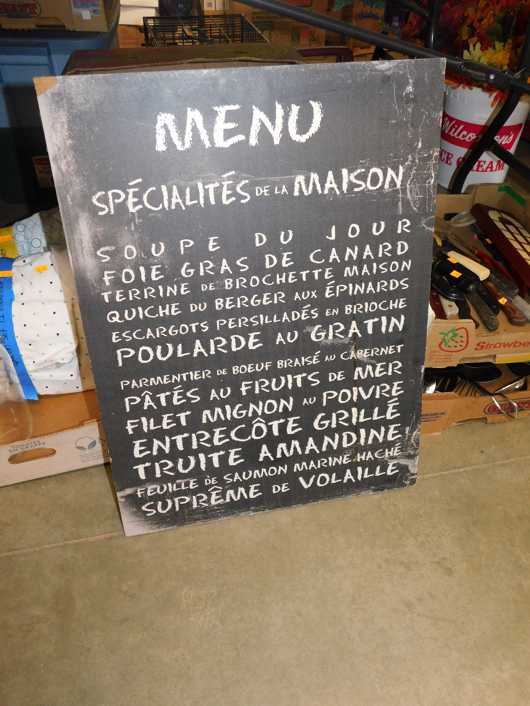 MENU
SPÉCIALITÉS DE LA MAISON
SOUPE DU JOUR
FOIE GRAS DE CANARD
TERRINE DE BROCHETTE MAISON
QUICHE DU BERGER AUX ÉPINARDS
ESCARGOTS PERSILLADÉS EN BRIOCHE
POULARDE AU GRATIN
PARMENTIER DE BOEUF BRAISÉ AU CABERNET
PÂTÉS AU FRUITS DE MER
FILET MIGNON AU POIVRE
ENTRECÔTE GRILLÉ
TRUITE AMANDINE
FEUILLE DE SAUMON MARINÉ HACHÉ
SUPRÊME DE VOLAILLE
ICE CREAM
Strawberr